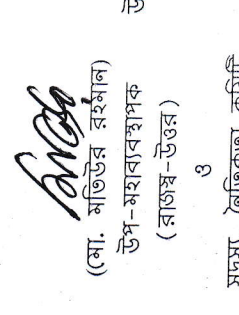 (মো. মতিউর রহমান)
উপ-মহাব্যবস্থাপক
(রাজস্ব-উত্তর)
ও
সদস্য নৈতিকতা কমিটি